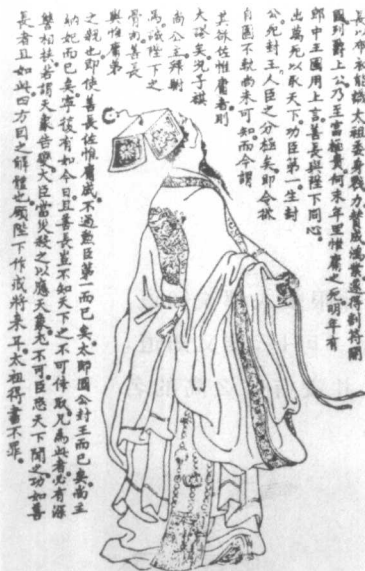 長以布衣能識太祖委身戮力贊成鴻業遂得剖符開
國列爵上公乃至富極貴何來年里惟庸之死明年有
郎中王國用上言善長與陛下同心
出萬死以取天下功臣第一生封
公死封王人臣之分極矣即令欲
自圖不軌尚未可知而今謂
其欲佐惟庸者則
大謬矣況子祺
尚公主拜駙
馬誠陛下之
骨肉善長
與惟庸第
之親也即使善長佐惟庸成不過勲臣第一而已矣太師國公封王而已矣尚主
納妃而已矣寧復有如今日且善長豈不知天下之不可倖取凡為此者必有深
讐相挾若謂天象告變大臣當災殺之以應天象尤不可臣恐天下聞之功如善
長者且如此四方因之解體也願陛下作戒將來耳太祖得書不罪